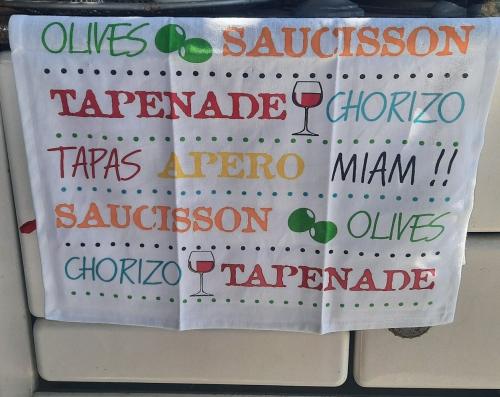 OLIVES SAUCISSON
TAPENADE CHORIZO
TAPAS APERO MIAM !!
SAUCISSON OLIVES
CHORIZO TAPENADE